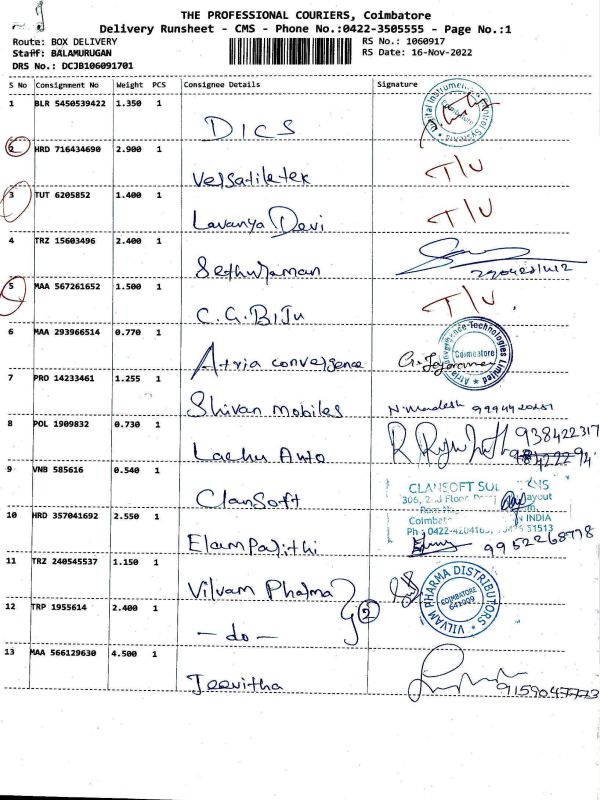 THE PROFESSIONAL COURIERS, Coimbatore
Delivery Runsheet - CMS - Phone No.:0422-3505555 - Page No.:1
Route: BOX DELIVERY RS No.: 1060917
Staff: BALAMURUGAN RS Date: 16-Nov-2022
DRS No.: DCJB106091701
S No Consignment No Weight PCS Consignee Details Signature
1 BLR 5450539422 1.350 1 DICS
2 HRD 716434690 2.900 1 Versatiletek T/U
3 TUT 6205852 1.400 1 Lavanya Devi T/U
4 TRZ 15603496 2.400 1 Sethuraman
5 MAA 567261652 1.500 1 C.G.BIJU T/U
6 MAA 293966514 0.770 1 Atria convergence
Atria Convergence Technologies Limited Coimbatore
7 PRO 14233461 1.255 1 Shivan mobiles
8 POL 1909832 0.730 1 Lachu Auto 938422317
9 VNB 585616 0.540 1 ClanSoft
CLANSOFT
306, 2nd Floor
layout
INDIA
10 HRD 357041692 2.550 1 Elamparithi 9952268798
11 TRZ 240545537 1.150 1 Vilvam Pharma
VILVAM PHARMA DISTRIBUTORS COIMBATORE 641009
12 TRP 1955614 2.400 1 - do - 2
13 MAA 566129630 4.500 1 Jeevitha 9159047773